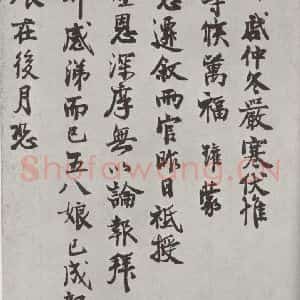 咸仲冬嚴寒伏惟
尊候萬福 瓘蒙
恩遷敘兩官昨日祗授
恩深厚無論報拜
感涕而已五八娘已成
在後月恐
Shufawang.CN